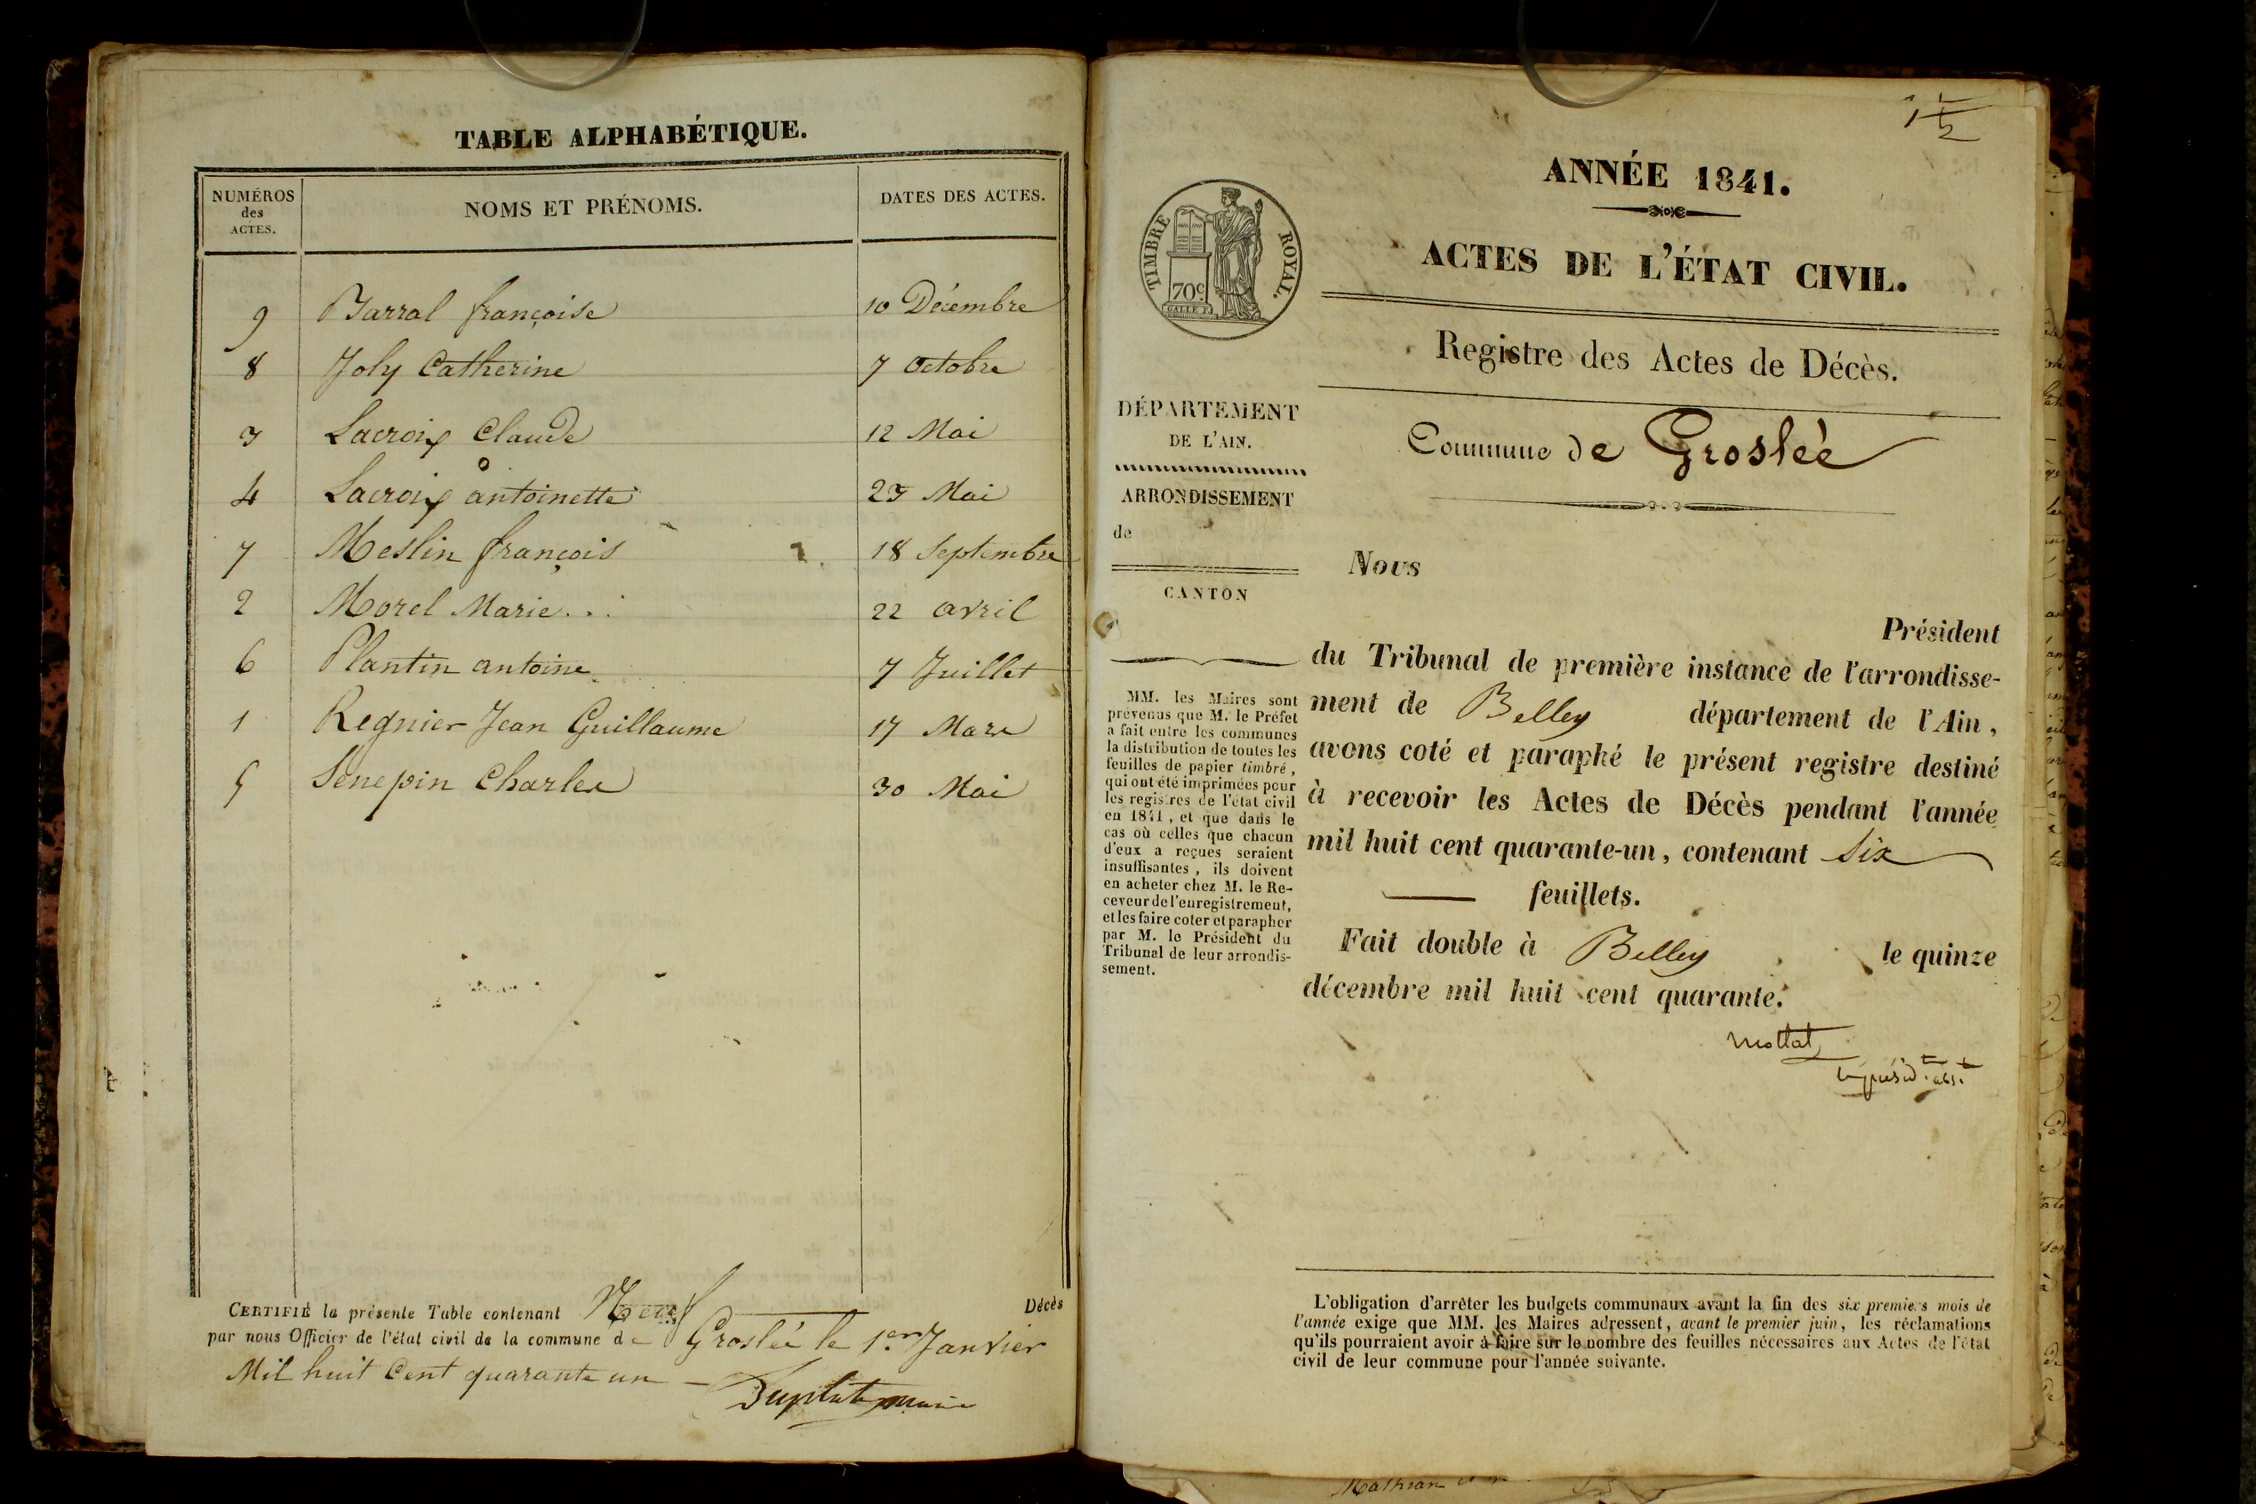 TABLE ALPHABÉTIQUE.
NUMÉROS
des
ACTES.
NOMS ET PRÉNOMS.
DATES DES ACTES.
9 Barral françoise 10 Décembre
8 Joly Catherine 7 Octobre
3 Lacroix Claude 12 Mai
4 Lacroix antoinette 23 Mai
7 Meslin françois 18 Septembre
2 Morel Marie 22 avril
6 Plantin antoine 7 Juillet
1 Regnier Jean Guillaume 17 Mars
5 Senepin Charles 30 Mai
CERTIFIÉ la présente Table contenant Neuf Décès
par nous Officier de l'état civil de la commune de Groslée le 1er Janvier
Mil huit Cent quarante un
maire
1/2
ANNÉE 1841.
TIMBRE ROYAL.
70c
ACTES DE L'ÉTAT CIVIL.
Registre des Actes de Décès.
Commune de Groslée
DÉPARTEMENT
DE L'AIN.
ARRONDISSEMENT
de
CANTON
MM. les Maires sont
prévenus que M. le Préfet
a fait entre les communes
la distribution de toutes les
feuilles de papier timbré,
qui ont été imprimées pour
les registres de l'état civil
en 1841, et que dans le
cas où celles que chacun
d'eux a reçues seraient
insuffisantes, ils doivent
en acheter chez M. le Re-
ceveur de l'enregistrement,
et les faire coter et parapher
par M. le Président du
Tribunal de leur arrondis-
sement.
Nous
Président
du Tribunal de première instance de l'arrondisse-
ment de Belley département de l'Ain,
avons coté et paraphé le présent registre destiné
à recevoir les Actes de Décès pendant l'année
mil huit cent quarante-un, contenant Six
feuillets.
Fait double à Belley le quinze
décembre mil huit cent quarante.
L'obligation d'arrêter les budgets communaux avant la fin des six premiers mois de
l'année exige que MM. les Maires adressent, avant le premier juin, les réclamations
qu'ils pourraient avoir à faire sur le nombre des feuilles nécessaires aux Actes de l'état
civil de leur commune pour l'année suivante.